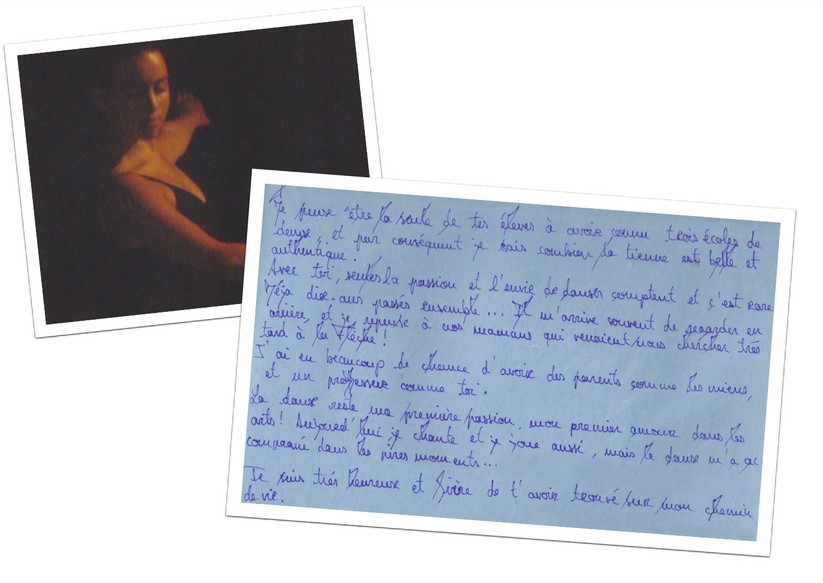 Je pense être la seule de tes élèves à avoir connu trois écoles de
danse, et par conséquent je sais combien la tienne est belle et
authentique.
Avec toi, seules la passion et l'envie de danser comptent et c'est rare
Déjà dix-ans passés ensemble... Il m'arrive souvent de regarder en
arrière, et je repense à nos mamans qui venaient nous chercher très
tard à la Flèche!
J'ai eu beaucoup de chance d'avoir des parents comme les miens,
et un professeur comme toi.
La danse reste ma première passion, mon premier amour dans les
arts! Aujourd'hui je chante et je joue aussi, mais la danse m'a ac
compagné dans les pires moments...
Je suis très heureuse et fière de t'avoir trouvé sur mon chemin
de vie.